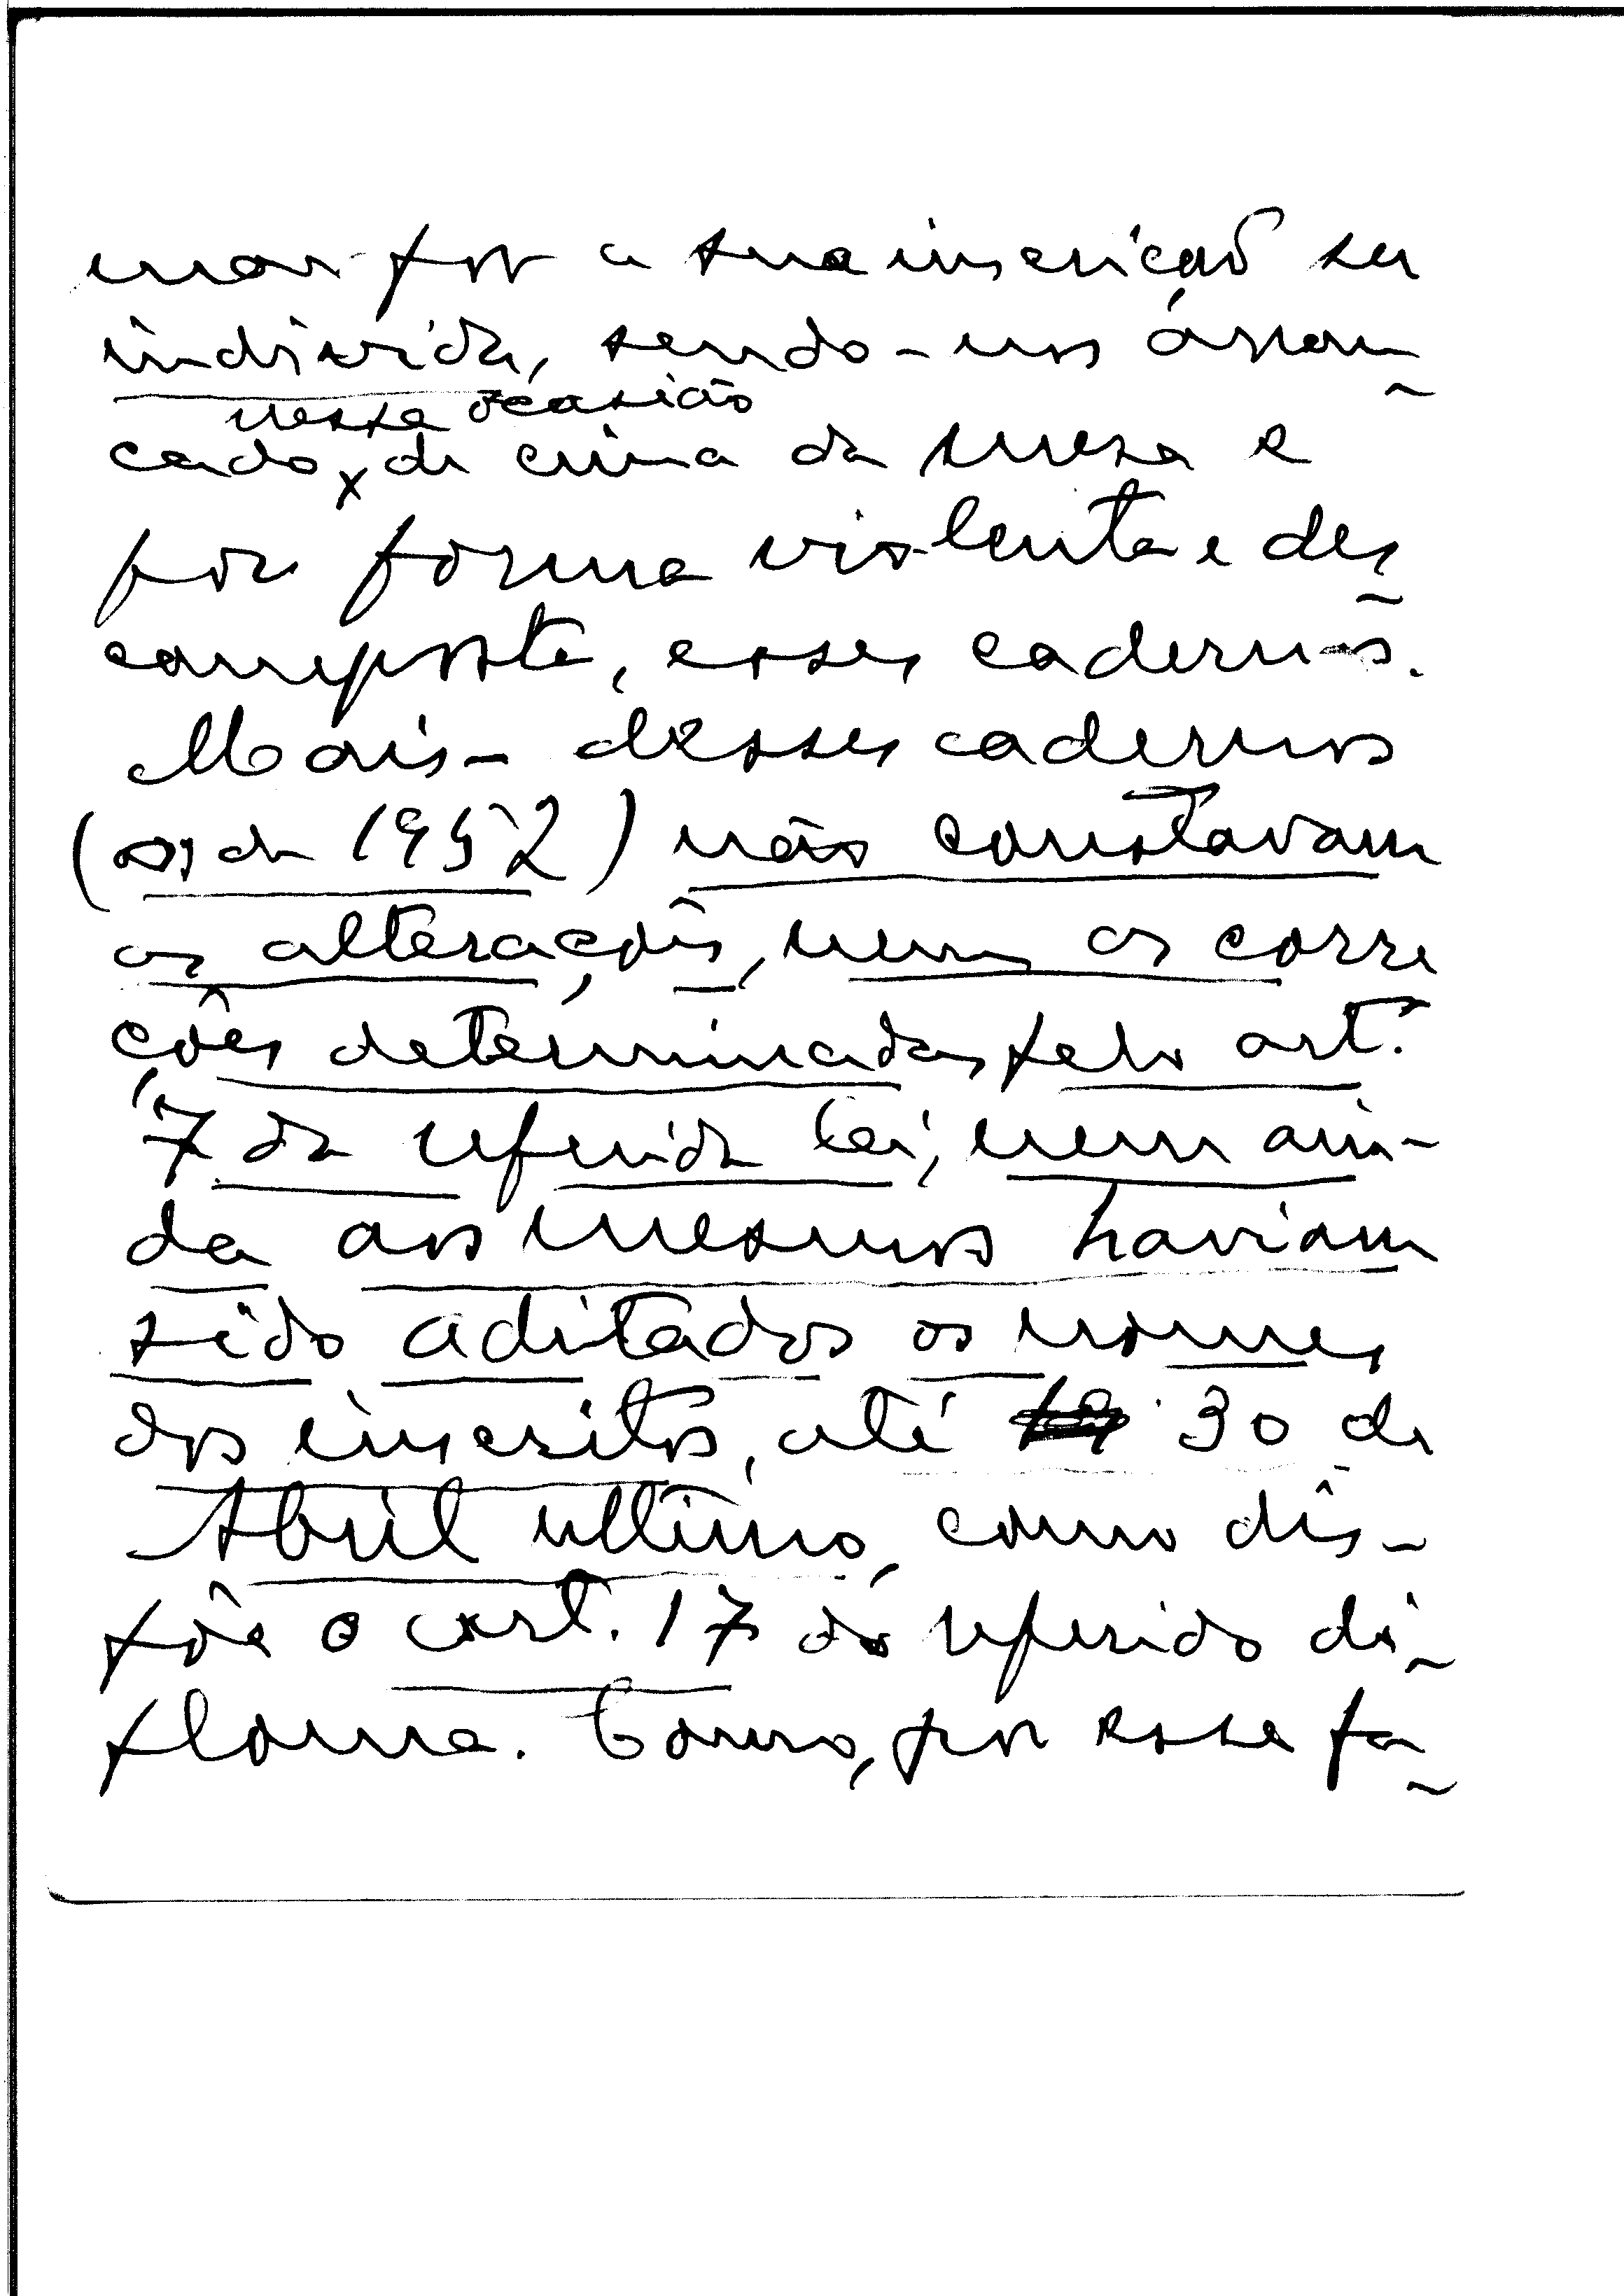 mar por a sua inscrição ser
indevida, sendo-nos arran-
nessa ocasião
cado, x de cima da mesa e
por forma violenta e des-
composta, esses cadernos.
Mais - desses cadernos
(os de 1952) não constavam
as alterações, nem as corre
ções determinadas pelo art.º
17 da referida lei, nem ain-
da aos mesmos haviam
sido aditados os nomes
dos inscritos, até 30 de
Abril ultimo, como dis-
põe o art. 17 do referido di-
ploma. Como, por essa fa-